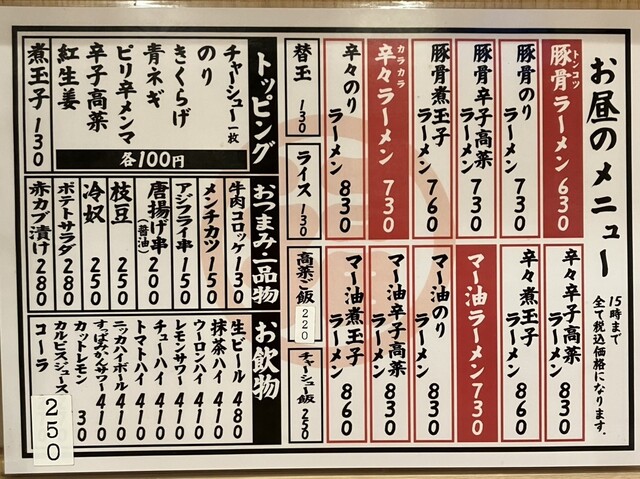 お昼のメニュー
15時まで
全て税込価格になります。
トンコツ
豚骨ラーメン 630
豚骨のりラーメン 730
豚骨辛子高菜ラーメン 730
豚骨煮玉子ラーメン 760
カラカラ
辛々ラーメン 730
辛々のりラーメン 830
替玉 130
ライス 130
辛々辛子高菜ラーメン 830
辛々煮玉子ラーメン 860
マー油ラーメン 730
マー油のりラーメン 830
マー油辛子高菜ラーメン 830
マー油煮玉子ラーメン 860
高菜ご飯 220
チャーシュー飯 250
トッピング
チャーシュー一枚
のり
きくらげ
青ネギ
ピリ辛メンマ
辛子高菜
紅生姜
各100円
煮玉子 130
おつまみ・一品物
牛肉コロッケ 130
メンチカツ 150
アジフライ串 150
唐揚げ串(醤油) 200
枝豆 250
冷奴 250
ポテトサラダ 280
赤カブ漬け 280
お飲物
生ビール 480
抹茶ハイ 410
ウーロンハイ 410
レモンサワー 410
チューハイ 410
トマトハイ 410
ニッカハイボール 410
すっぱムーチョサワー 410
カットレモン 30
カルピスジュース
コーラ
250